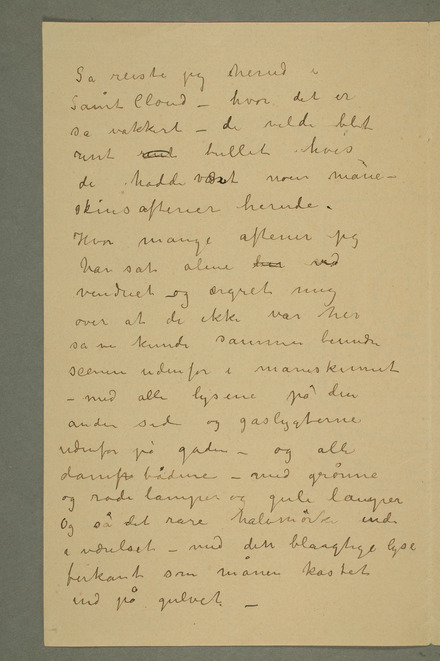 Sa reiste jeg herud i
Saint Cloud – hvor det er
sa vakkert – de vilde blit
rent rent tullet hvis
de hadde vært noen måne-
skinsaftener herude.
Hvor mange aftener jeg
har sat alene her ved
vinduet og ærgret mig
over at de ikke var her
sa vi kunde sammen beundre
scenen udenfor i maneskinnet
– med alle lysene på den
anden side og gaslygterne
udenfor på gaden – og alle
dampbådene – med grønne
og røde lamper og gule lamper
Og så det rare halvmørke inde
i værelset – med den blaaglige lyse
firkant som månen kastet
ind på gulvet –